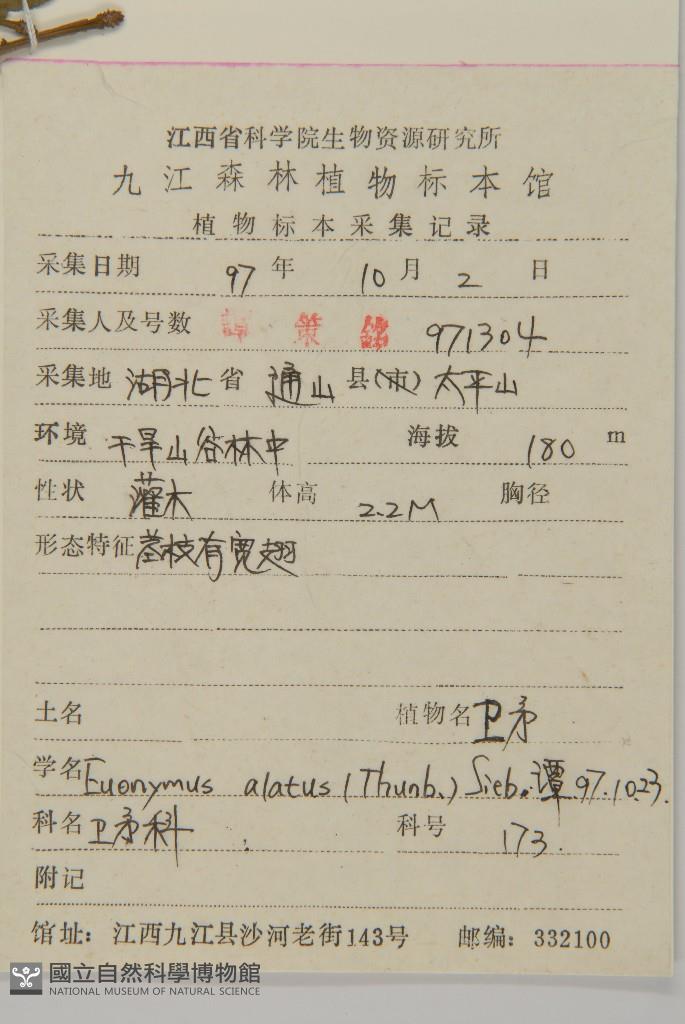 江西省科学院生物资源研究所
九江森林植物标本馆
植物标本采集记录
采集日期 97 年 10 月 2 日
采集人及号数 譚策銘 971304
采集地 湖北 省 通山 县(市) 太平山
环境 干旱山谷林中 海拔 180 m
性状 灌木 体高 2.2M 胸径
形态特征 茎枝有宽翅
土名 植物名 卫矛
学名 Euonymus alatus (Thunb.) Sieb. 谭 97.10.23.
科名 卫矛科 科号 173.
附记
馆址: 江西九江县沙河老街143号 邮编: 332100
國立自然科學博物館
NATIONAL MUSEUM OF NATURAL SCIENCE